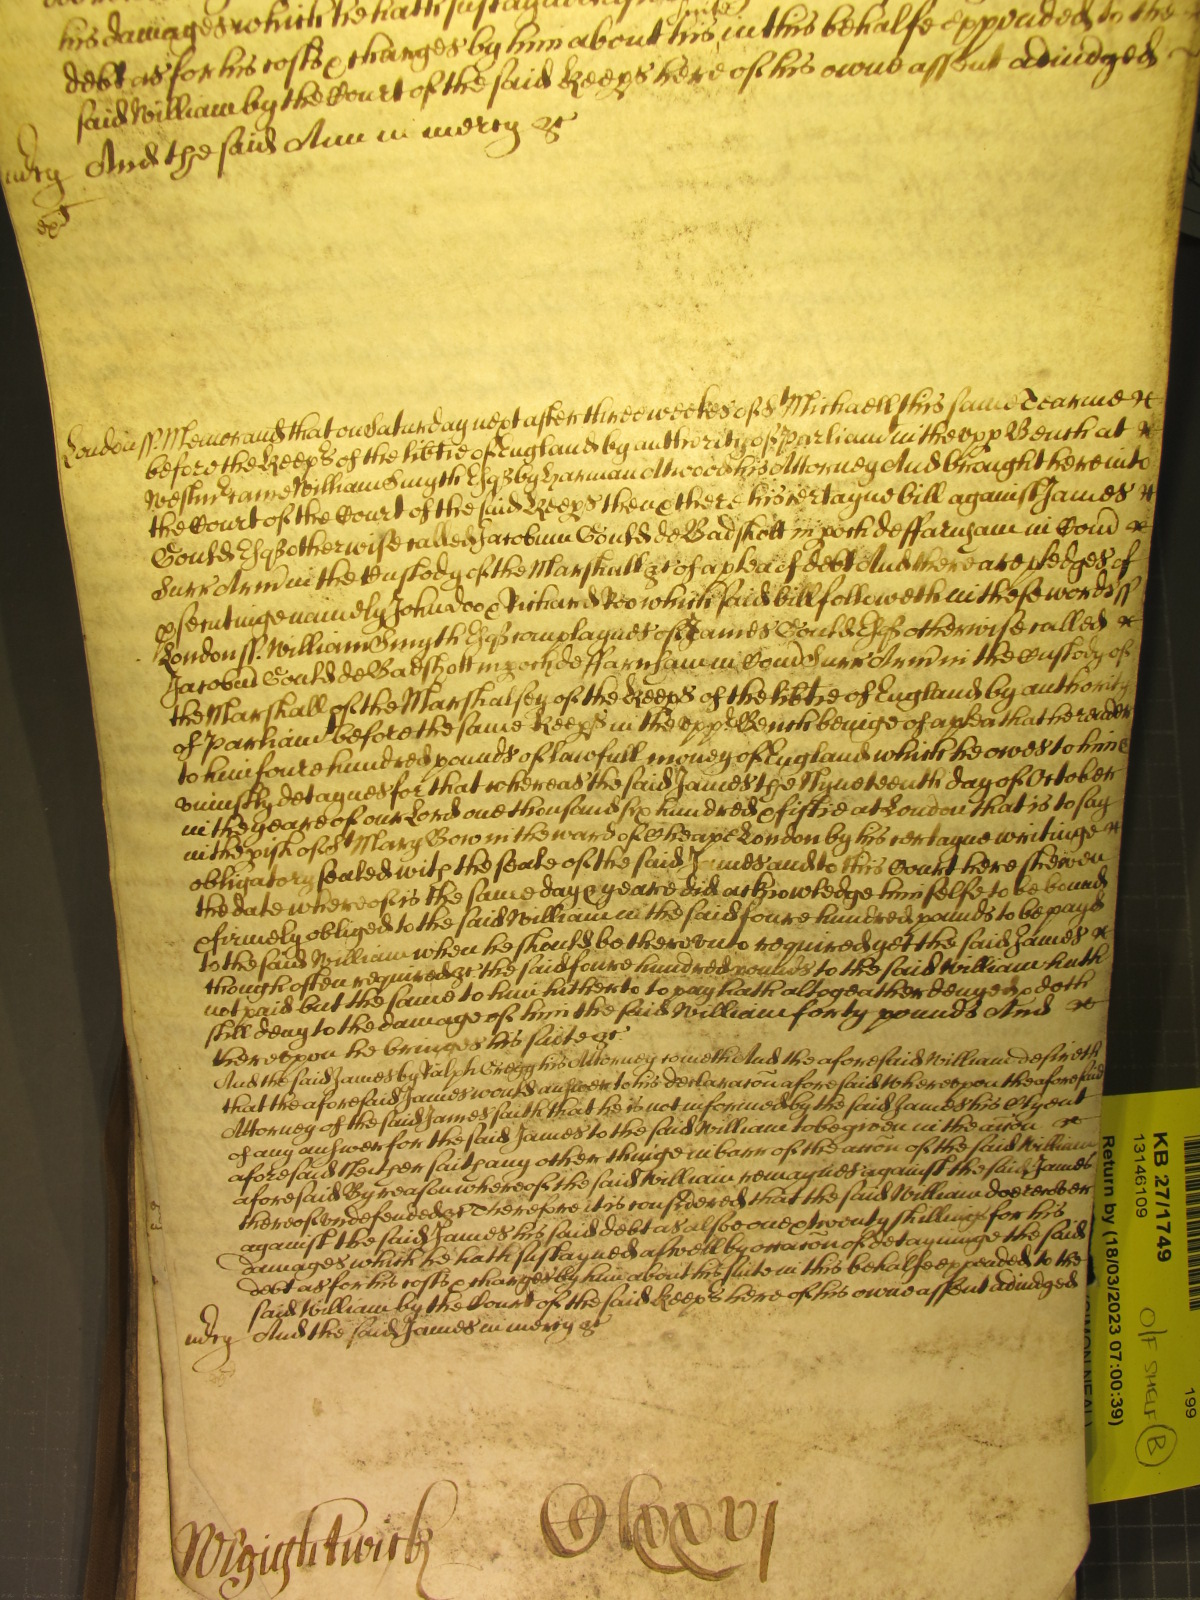 his damages which he hath sustayned
debt as for his costs & charges by him about his suite in this behalfe expended to the
said William by the Court of the said Keeps here of his owne assent adiudged
mercy And the said Ann in mercy &c
London ss. Memorand that on Saturday next after three weekes of St Michaell this same Tearme
before the Keeps of the libtie of England by authority of Parliam in the upp Bench at
Westm came William Smyth Esq by Harman Atwood his Attorney And brought here into
the Court of the Court of the said Keeps then & there his certayne bill against James
Gould Esq otherwise called Jacobum Gould de Badshott in poch de Farnham in Com
Surr Arm in the Custody of the Marshall &c of a plea of debt And there are pledges of
psecutinge namely John doo & Richard Roo which said bill followeth in these words ss
London ss. William Smyth Esq complaynes of James Gould Esq otherwise called
Jacobu Gould de Badshott in poch de Farnham in Com Surr Arm in the Custody of
the Marshall of the Marshalsey of the Keeps of the libtie of England by authority
of Parliam before the same Keeps in the upp Bench beinge of a plea that he render
to him foure hundred pounds of lawfull money of England which he owes to him &
uniustly detaynes for that whereas the said James the Nyneteenth day of October
in the yeare of our Lord one thousand six hundred & fiftie at London that is to say
in the pish of St Mary Bow in the ward of Cheape London by his certayne writinge
obligatory sealed with the seale of the said James and to this Court here shewen
the date whereof is the same day & yeare did acknowledge himselfe to be bound
& firmely obliged to the said William in the said foure hundred pounds to be payd
to the said William when he should be thereunto required yet the said James
though often required &c the said foure hundred pounds to the said William hath
not paid but the same to him hitherto to pay hath altogeather denyed & doth
still deny to the damage of him the said William forty pounds And
thereupon he bringes his suite &c
And the said James by Ralph Gregg his Attorney cometh And the aforesaid William desireth
that the aforesaid James would answer to his declaracon aforesaid whereupon the aforesaid
Attorney of the said James saith that he is not informed by the said James his Clyent
of any answer for the said James to the said William to be given in the accon
aforesaid Neither saith any other thinge in barr of the accon of the said William
aforesaid By reason whereof the said William remaynes against the said James
thereof undefended &c Therefore it is considered that the said William doe recover
against the said James his said debt as alsoe one & twenty shillings for his
damages which he hath sustayned aswell by occacon of detayninge the said
debt as for his costs & charges by him about his suite in this behalfe expended to the
said William by the Court of the said Keeps here of his owne assent adiudged
mercy And the said James in mercy &c
Wightwick
KB 27/1749
13146109
Return by (18/03/2023 07:00:39)
O/F SHELF B
199